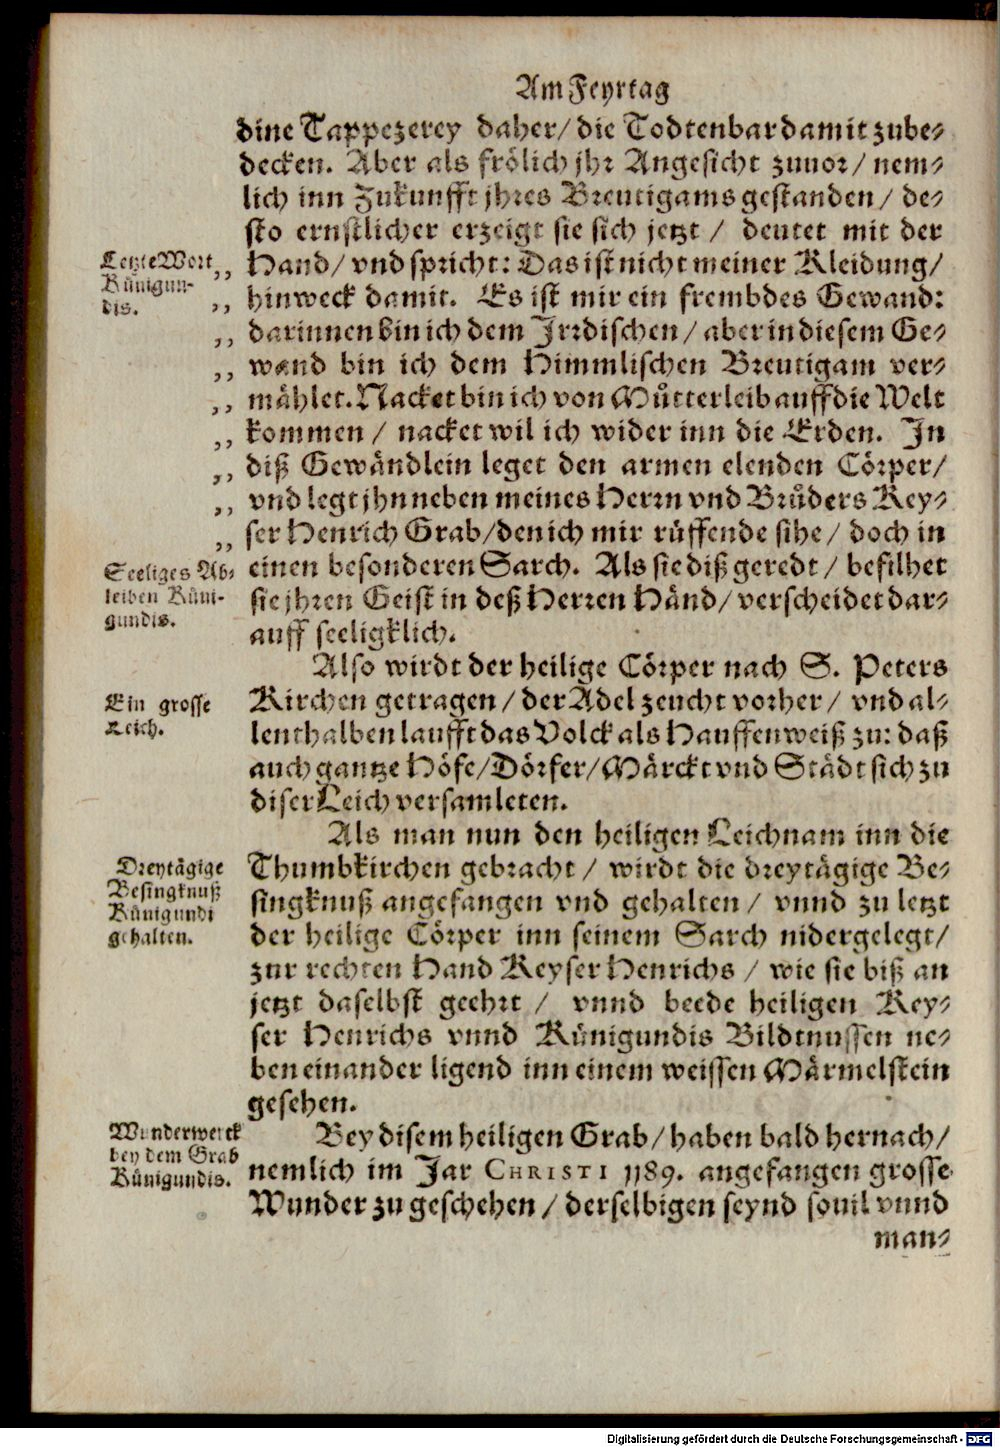 Am Feyrtag
dine Tappezerey daher/ die Todtenbar damit zube-
decken. Aber als frölich jhr Angesicht zuuor/ nem-
lich inn Zukunfft jhres Breutigams gestanden/ de-
sto ernstlicher erzeigt sie sich jetzt/ deutet mit der
Letzte Wort
Künigun-
dis.
,, Hand/ vnd spricht: Das ist nicht meiner Kleidung/
,, hinweck damit. Es ist mir ein frembdes Gewand:
,, darinnen bin ich dem Jrrdischen/ aber in diesem Ge-
,, wand bin ich dem Himmlischen Breutigam ver-
,, mählet. Nacket bin ich von Můtterleib auff die Welt
,, kommen/ nacket wil ich wider inn die Erden. Jn
,, diß Gewändlein leget den armen elenden Cörper/
,, vnd legt jhn neben meines Herrn vnd Brůders Key-
,, ser Henrich Grab/ den ich mir rüffende sihe/ doch in
Seeliges Ab-
leiben Küni-
gundis.
einen besonderen Sarch. Als sie diß geredt/ befilhet
sie jhren Geist in deß Herren Händ/ verscheidet dar-
auff seeligklich.
Also wirdt der heilige Cörper nach S. Peters
Ein grosse
Leich.
Kirchen getragen/ der Adel zeucht vorher/ vnd al-
lenthalben laufft das Volck als Hauffenweiß zu: daß
auch gantze Höfe/ Dörfer/ Märckt vnd Städt sich zu
diser Leich versamleten.
Als man nun den heiligen Leichnam inn die
Dreytägige
Besingknuß
Künigundi
gehalten.
Thumbkirchen gebracht/ wirdt die dreytägige Be-
singknuß angefangen vnd gehalten/ vnnd zu letzt
der heilige Cörper inn seinem Sarch nidergelegt/
zur rechten Hand Keyser Henrichs/ wie sie biß an
jetzt daselbst geehrt/ vnnd beede heiligen Key-
ser Henrichs vnnd Künigundis Bildtnussen ne-
ben einander ligend inn einem weissen Märmelstein
gesehen.
Wunderwerck
bey dem Grab
Künigundis.
Bey disem heiligen Grab/ haben bald hernach/
nemlich im Jar CHRISTI 1189. angefangen grosse
Wunder zu geschehen/ derselbigen seynd souil vnnd
man-
Digitalisierung gefördert durch die Deutsche Forschungsgemeinschaft - DFG